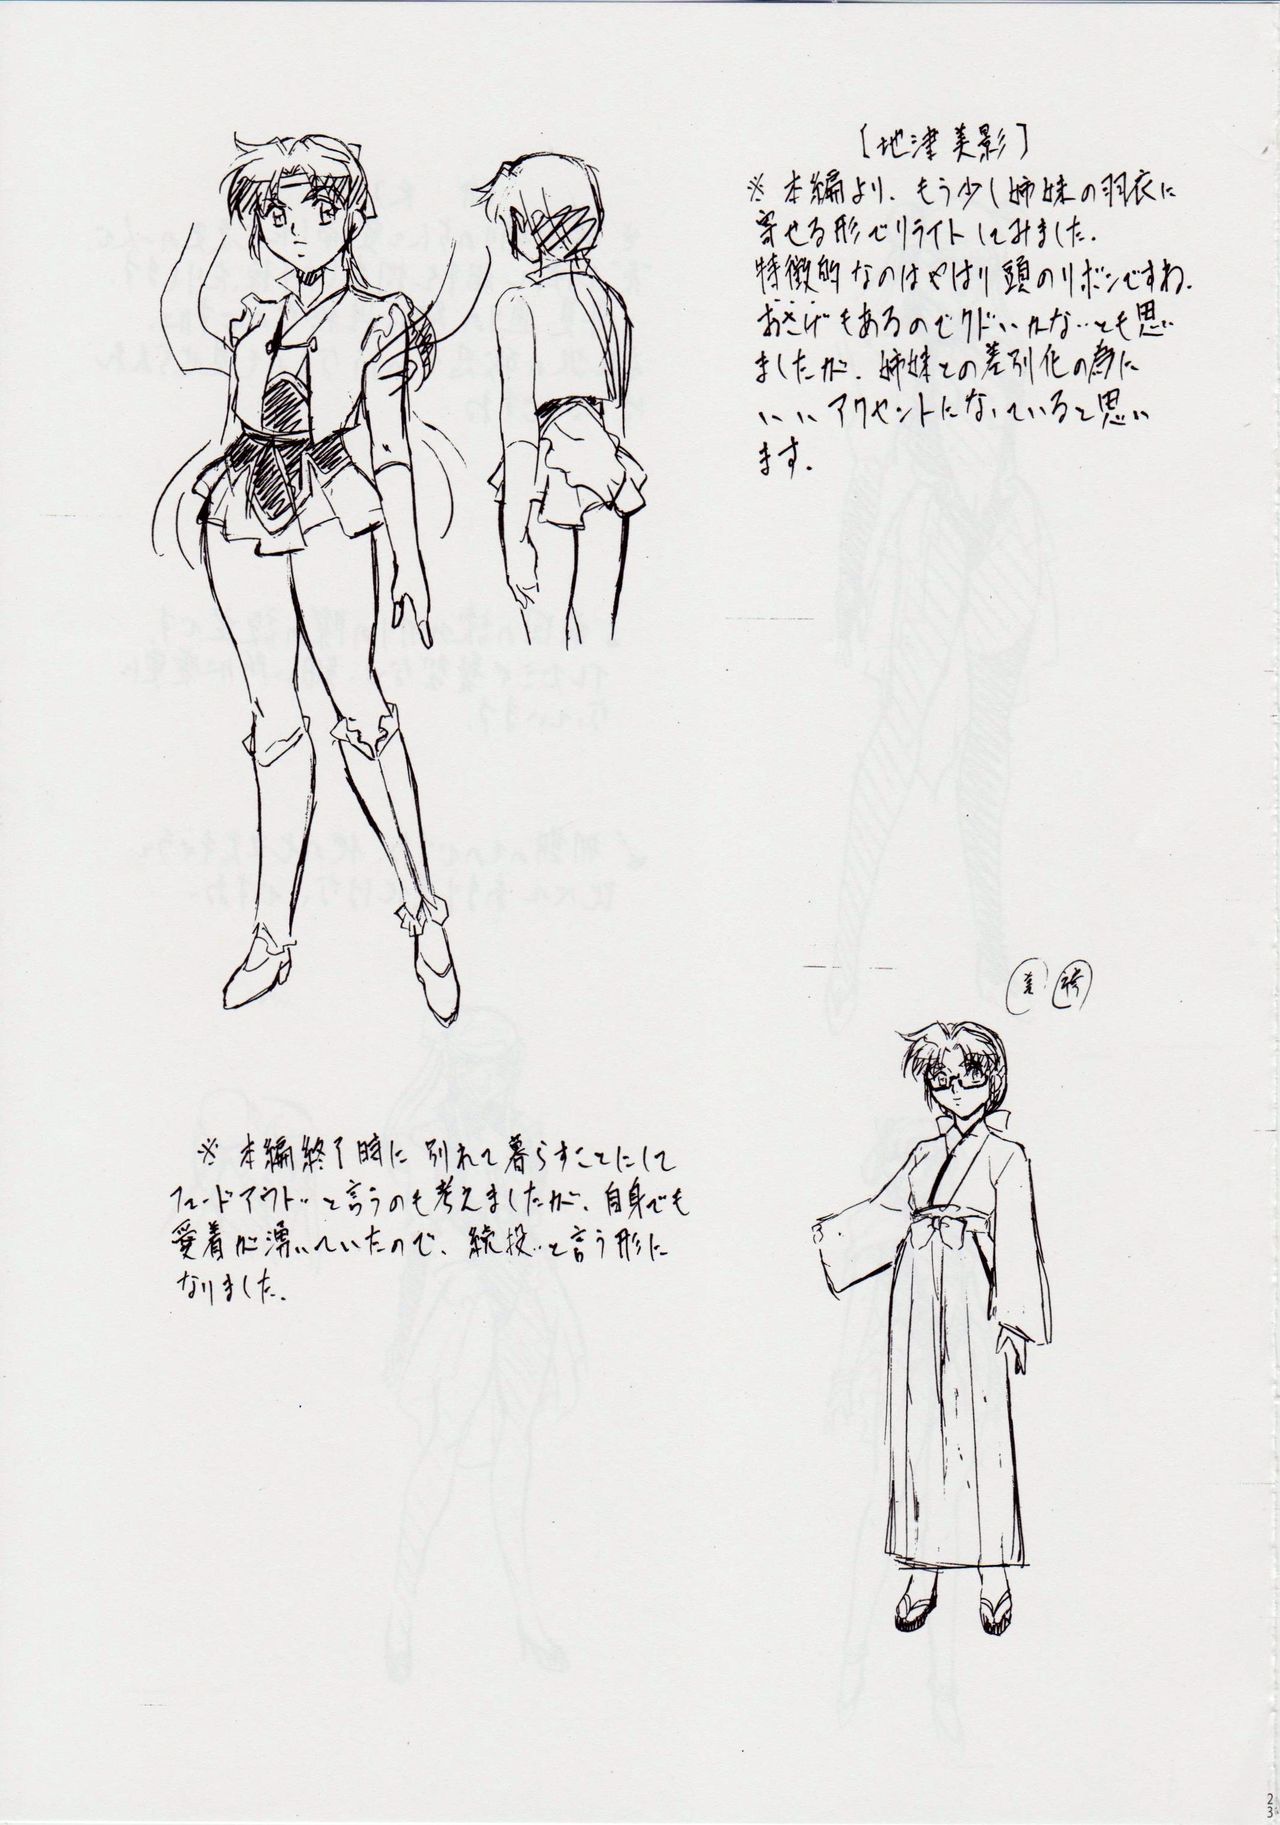 【地津美影】
※本編より、もう少し姉妹の羽衣に
寄せる形でリライトしてみました。
特徴的なのはやはり頭のリボンですね。
おさげもあるのでクドいかな…とも思い
ましたが、姉妹との差別化の為に
いいアクセントになっていると思い
ます。
※本編終了時に別れて暮らすことにして
フェードアウト…と言うのも考えましたが、自身でも
愛着が湧いていたので、続投…と言う形に
なりました。
23